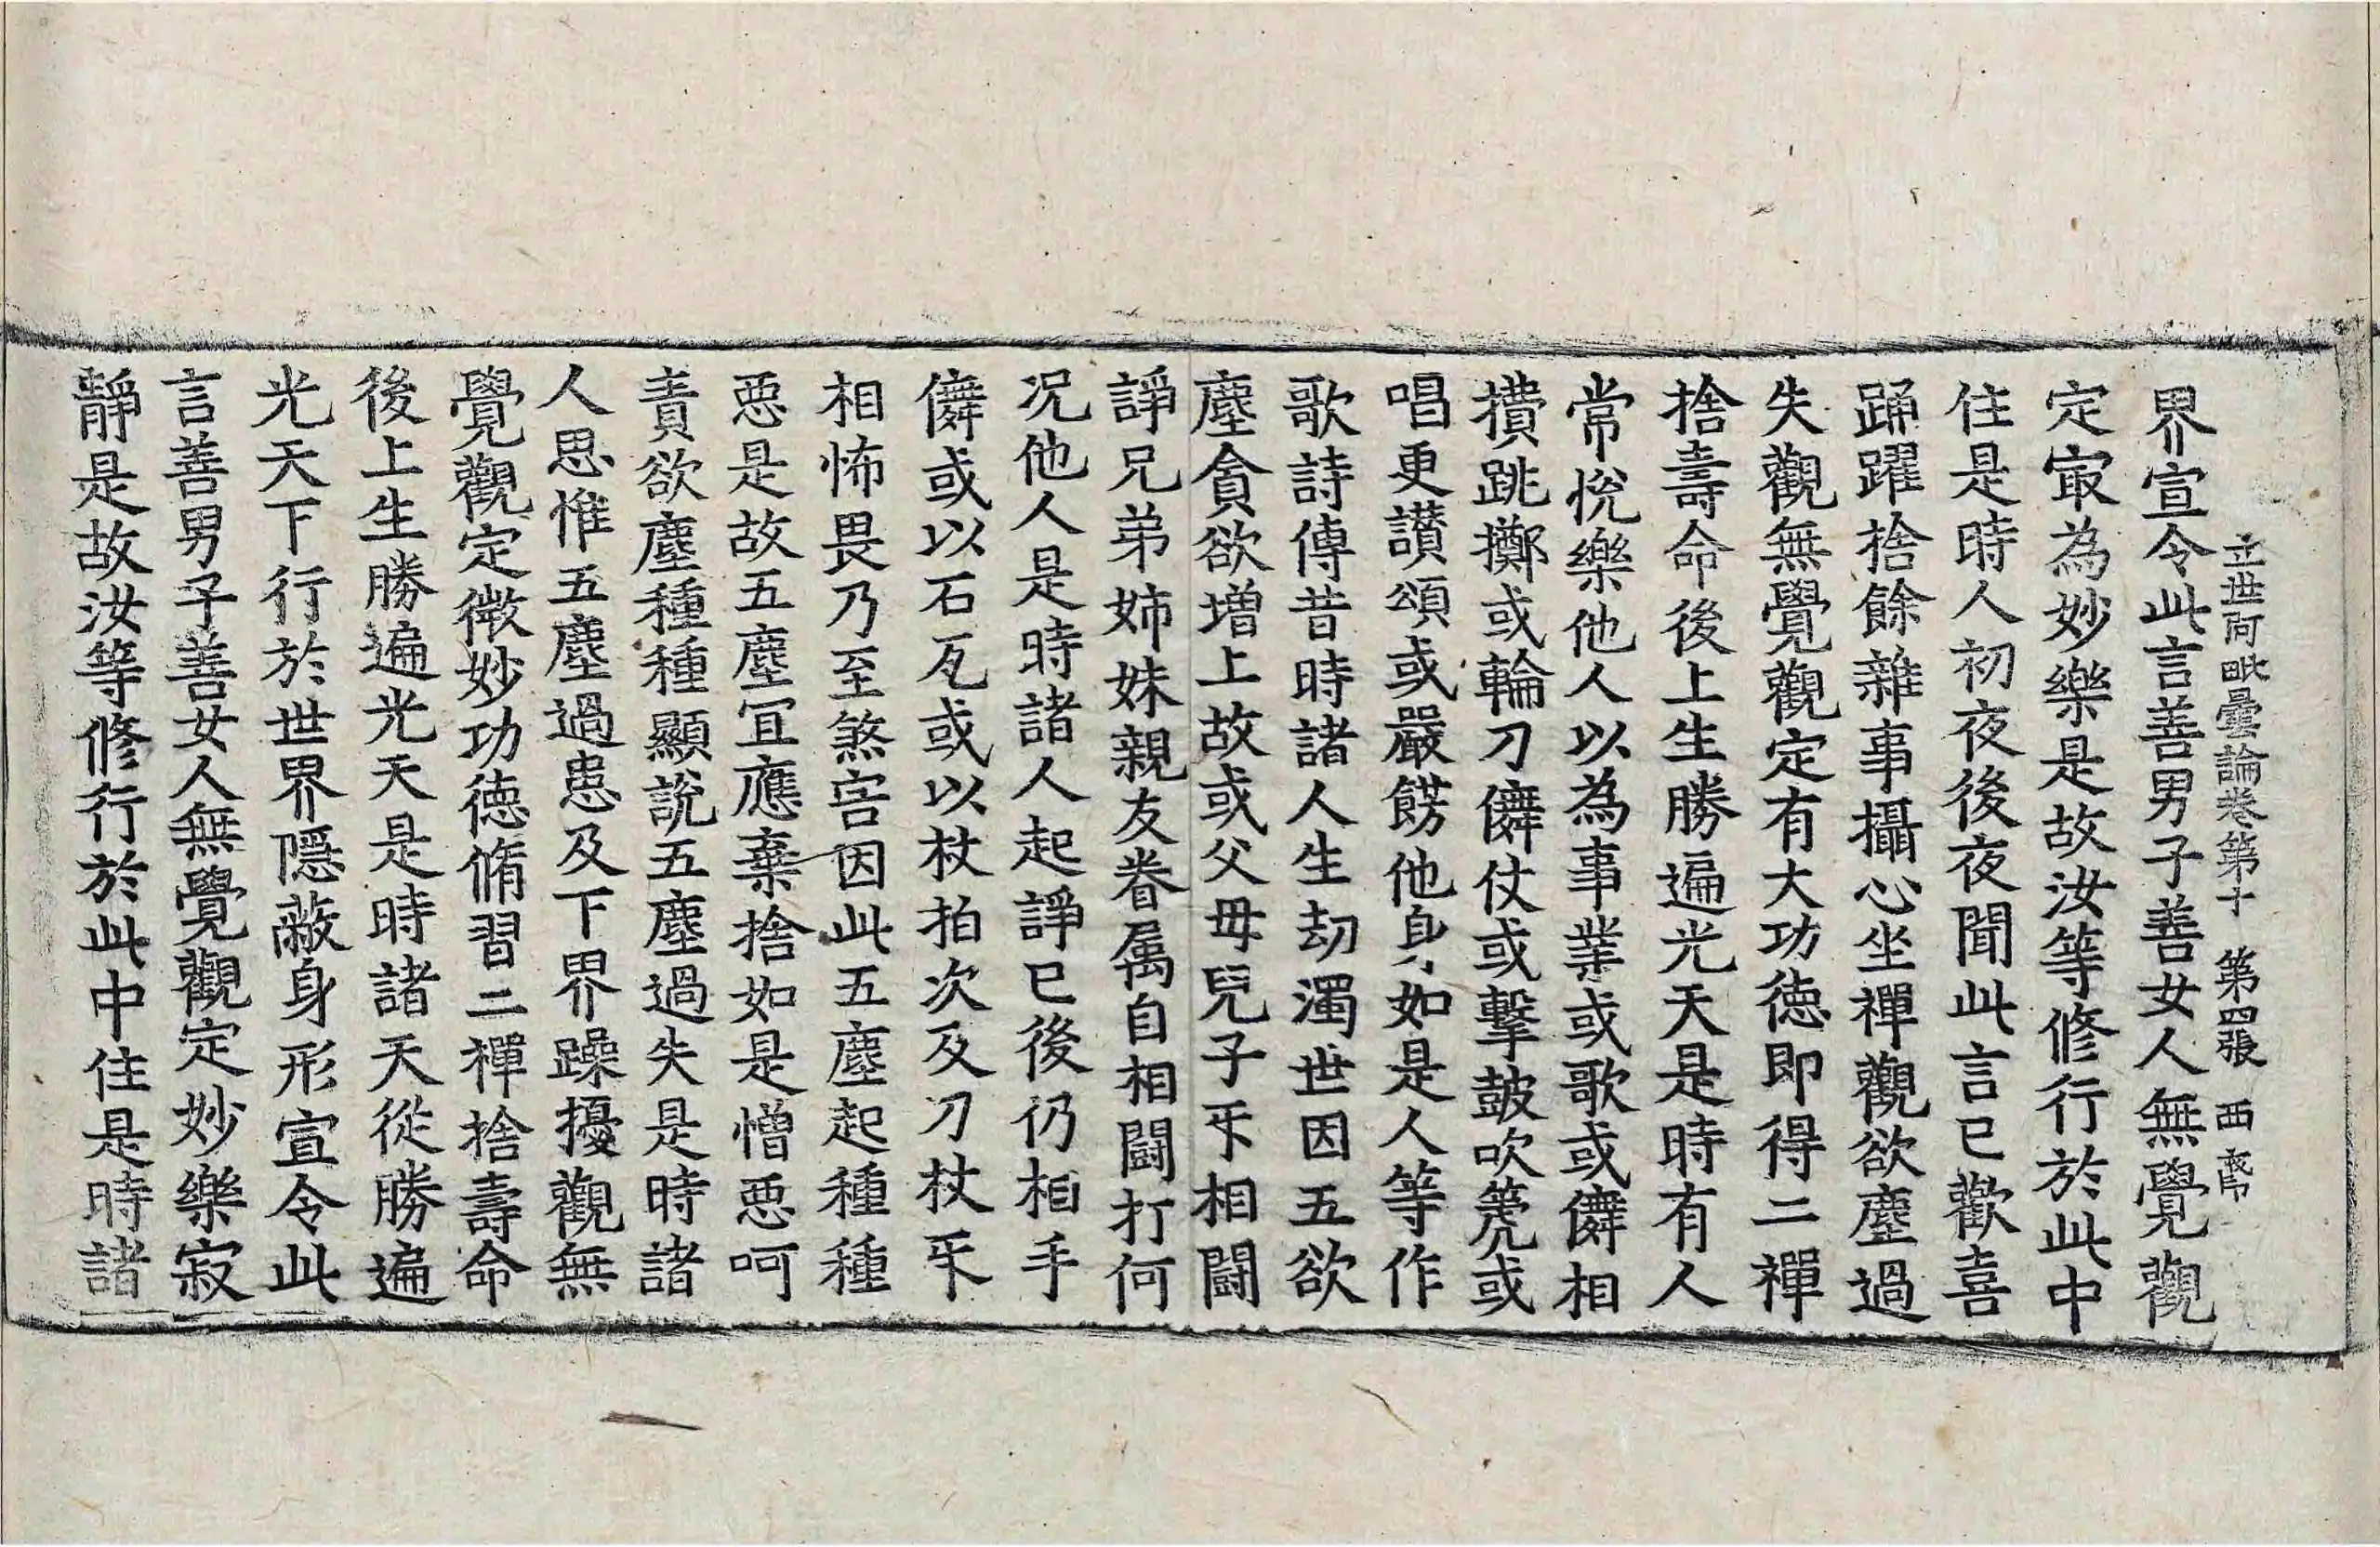 立世阿毗曇論卷第十 第四張 西
界宣令此言善男子善女人無覺觀
定㝡為妙樂是故汝等修行於此中
住是時人初夜後夜聞此言已歡喜
踊躍捨餘雜事攝心坐禪觀欲塵過
失觀無覺觀定有大功德即得二禪
捨壽命後上生勝遍光天是時有人
常悅樂他人以為事業或歌或儛相
攢跳擲或輪刀儛仗或擊皷吹箎或
唱更讃頌或嚴餝他身如是人等作
歌詩傳昔時諸人生劫濁世因五欲
塵貪欲增上故或父母兒子㸦相鬪
諍兄弟姉妹親友眷属自相鬪打何
况他人是時諸人起諍已後仍相手
儛或以石瓦或以杖拍次及刀杖㸦
相怖畏乃至煞害因此五塵起種種
惡是故五塵冝應棄捨如是憎惡呵
責欲塵種種顯說五塵過失是時諸
人思惟五塵過患及下界躁擾觀無
覺觀定微妙功德脩習二禪捨壽命
後上生勝遍光天是時諸天從勝遍
光天下行於世界隱蔽身形宣令此
言善男子善女人無覺觀定妙樂寂
靜是故汝等修行於此中住是時諸